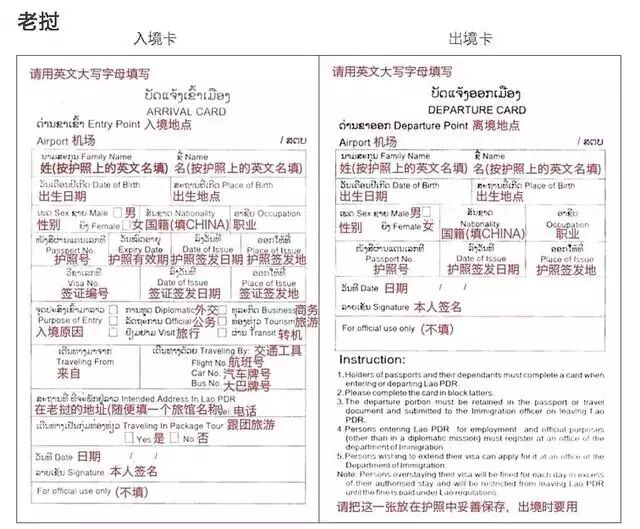 老挝
入境卡
请用英文大写字母填写
ບັດແຈ້ງເຂົ້າເມືອງ
ARRIVAL CARD
ດ່ານຂາເຂົ້າ Entry Point 入境地点
Airport 机场 / ສຕບ
ນາມສະກຸນ Family Name ຊື່ Name
姓(按护照上的英文填) 名(按护照上的英文填)
ວັນເດືອນປີເກີດ Date of Birth ສະຖານທີ່ເກີດ Place of Birth
出生日期 出生地点
ເພດ Sex ຊາຍ Male 男 ສັນຊາດ Nationality ອາຊີບ Occupation
性别 ຍິງ Female 女 国籍(填CHINA) 职业
ໜັງສືຜ່ານແດນເລກທີ ວັນໝົດອາຍຸ ລົງວັນທີ ອອກໃຫ້ທີ່
Passport No. Expiry Date Date of Issue Place of Issue
护照号 护照有效期 护照签发日期 护照签发地
ວີຊາເລກທີ ລົງວັນທີ ອອກໃຫ້ທີ່
Visa No. Date of Issue Place of Issue
签证编号 签证签发日期 签证签发地
ຈຸດປະສົງເຂົ້າມາລາວ ການທູດ Diplomatic 外交 ທຸລະກິດ Business 商务
Purpose of Entry ລັດຖະການ Official 公务 ທ່ອງທ່ຽວ Tourism 旅游
入境原因 ຢ້ຽມຢາມ Visit 旅行 ຜ່ານ Transit 转机
ເດີນທາງມາຈາກ ເດີນທາງດ້ວຍ Traveling By: 交通工具
Traveling From Flight No. 航班号
来自 Car No. 汽车牌号
Bus No. 大巴牌号
ສະຖານທີ່ ທີ່ຈະພັກຢູ່ລາວ Intended Address In Lao PDR
在老挝的地址(随便填一个旅馆名称) Tel: 电话
ເດີນທາງເປັນກຸ່ມທ່ອງທ່ຽວ Traveling In Package Tour 跟团旅游
Yes 是 No 否
ວັນທີ Date 日期 / /
ລາຍເຊັນ Signature 本人签名
For official use only (不填)
出境卡
请用英文大写字母填写
ບັດແຈ້ງອອກເມືອງ
DEPARTURE CARD
ດ່ານຂາອອກ Departure Point 离境地点
Airport 机场 / ສຕບ
ນາມສະກຸນ Family Name ຊື່ Name
姓(按护照上的英文填) 名(按护照上的英文填)
ວັນເດືອນປີເກີດ Date of Birth ສະຖານທີ່ເກີດ Place of Birth
出生日期 出生地点
ເພດ Sex ຊາຍ Male 男 ສັນຊາດ ອາຊີບ
性别 ຍິງ Female 女 Nationality Occupation
国籍(填CHINA) 职业
ໜັງສືຜ່ານແດນເລກທີ ລົງວັນທີ ອອກໃຫ້ທີ່
Passport No. Date of Issue Place of Issue
护照号 护照签发日期 护照签发地
ວັນທີ Date 日期 / /
ລາຍເຊັນ Signature 本人签名
For official use only (不填)
Instruction:
1.Holders of passports and their dependants must complete a card when
entering or departing Lao PDR.
2.Please complete the card in block latters.
3.The departure portion must be retained in the passport or travel
document and submitted to the Immigration officer on leaving Lao
PDR.
4.Persons entering Lao PDR for employment and official purposes
(other than in a diplomatic mission) must register at an office of the
department of Immigration.
5.Persons wishing to extend their visa can apply for it at an office of the
Department of Immigration.
Note: Persons overstaying their visa will be fined for each day in excess
of their authorised stay and will be restricted from leaving Lao PDR
until the fine is paid under Lao regulations.
请把这一张放在护照中妥善保存，出境时要用